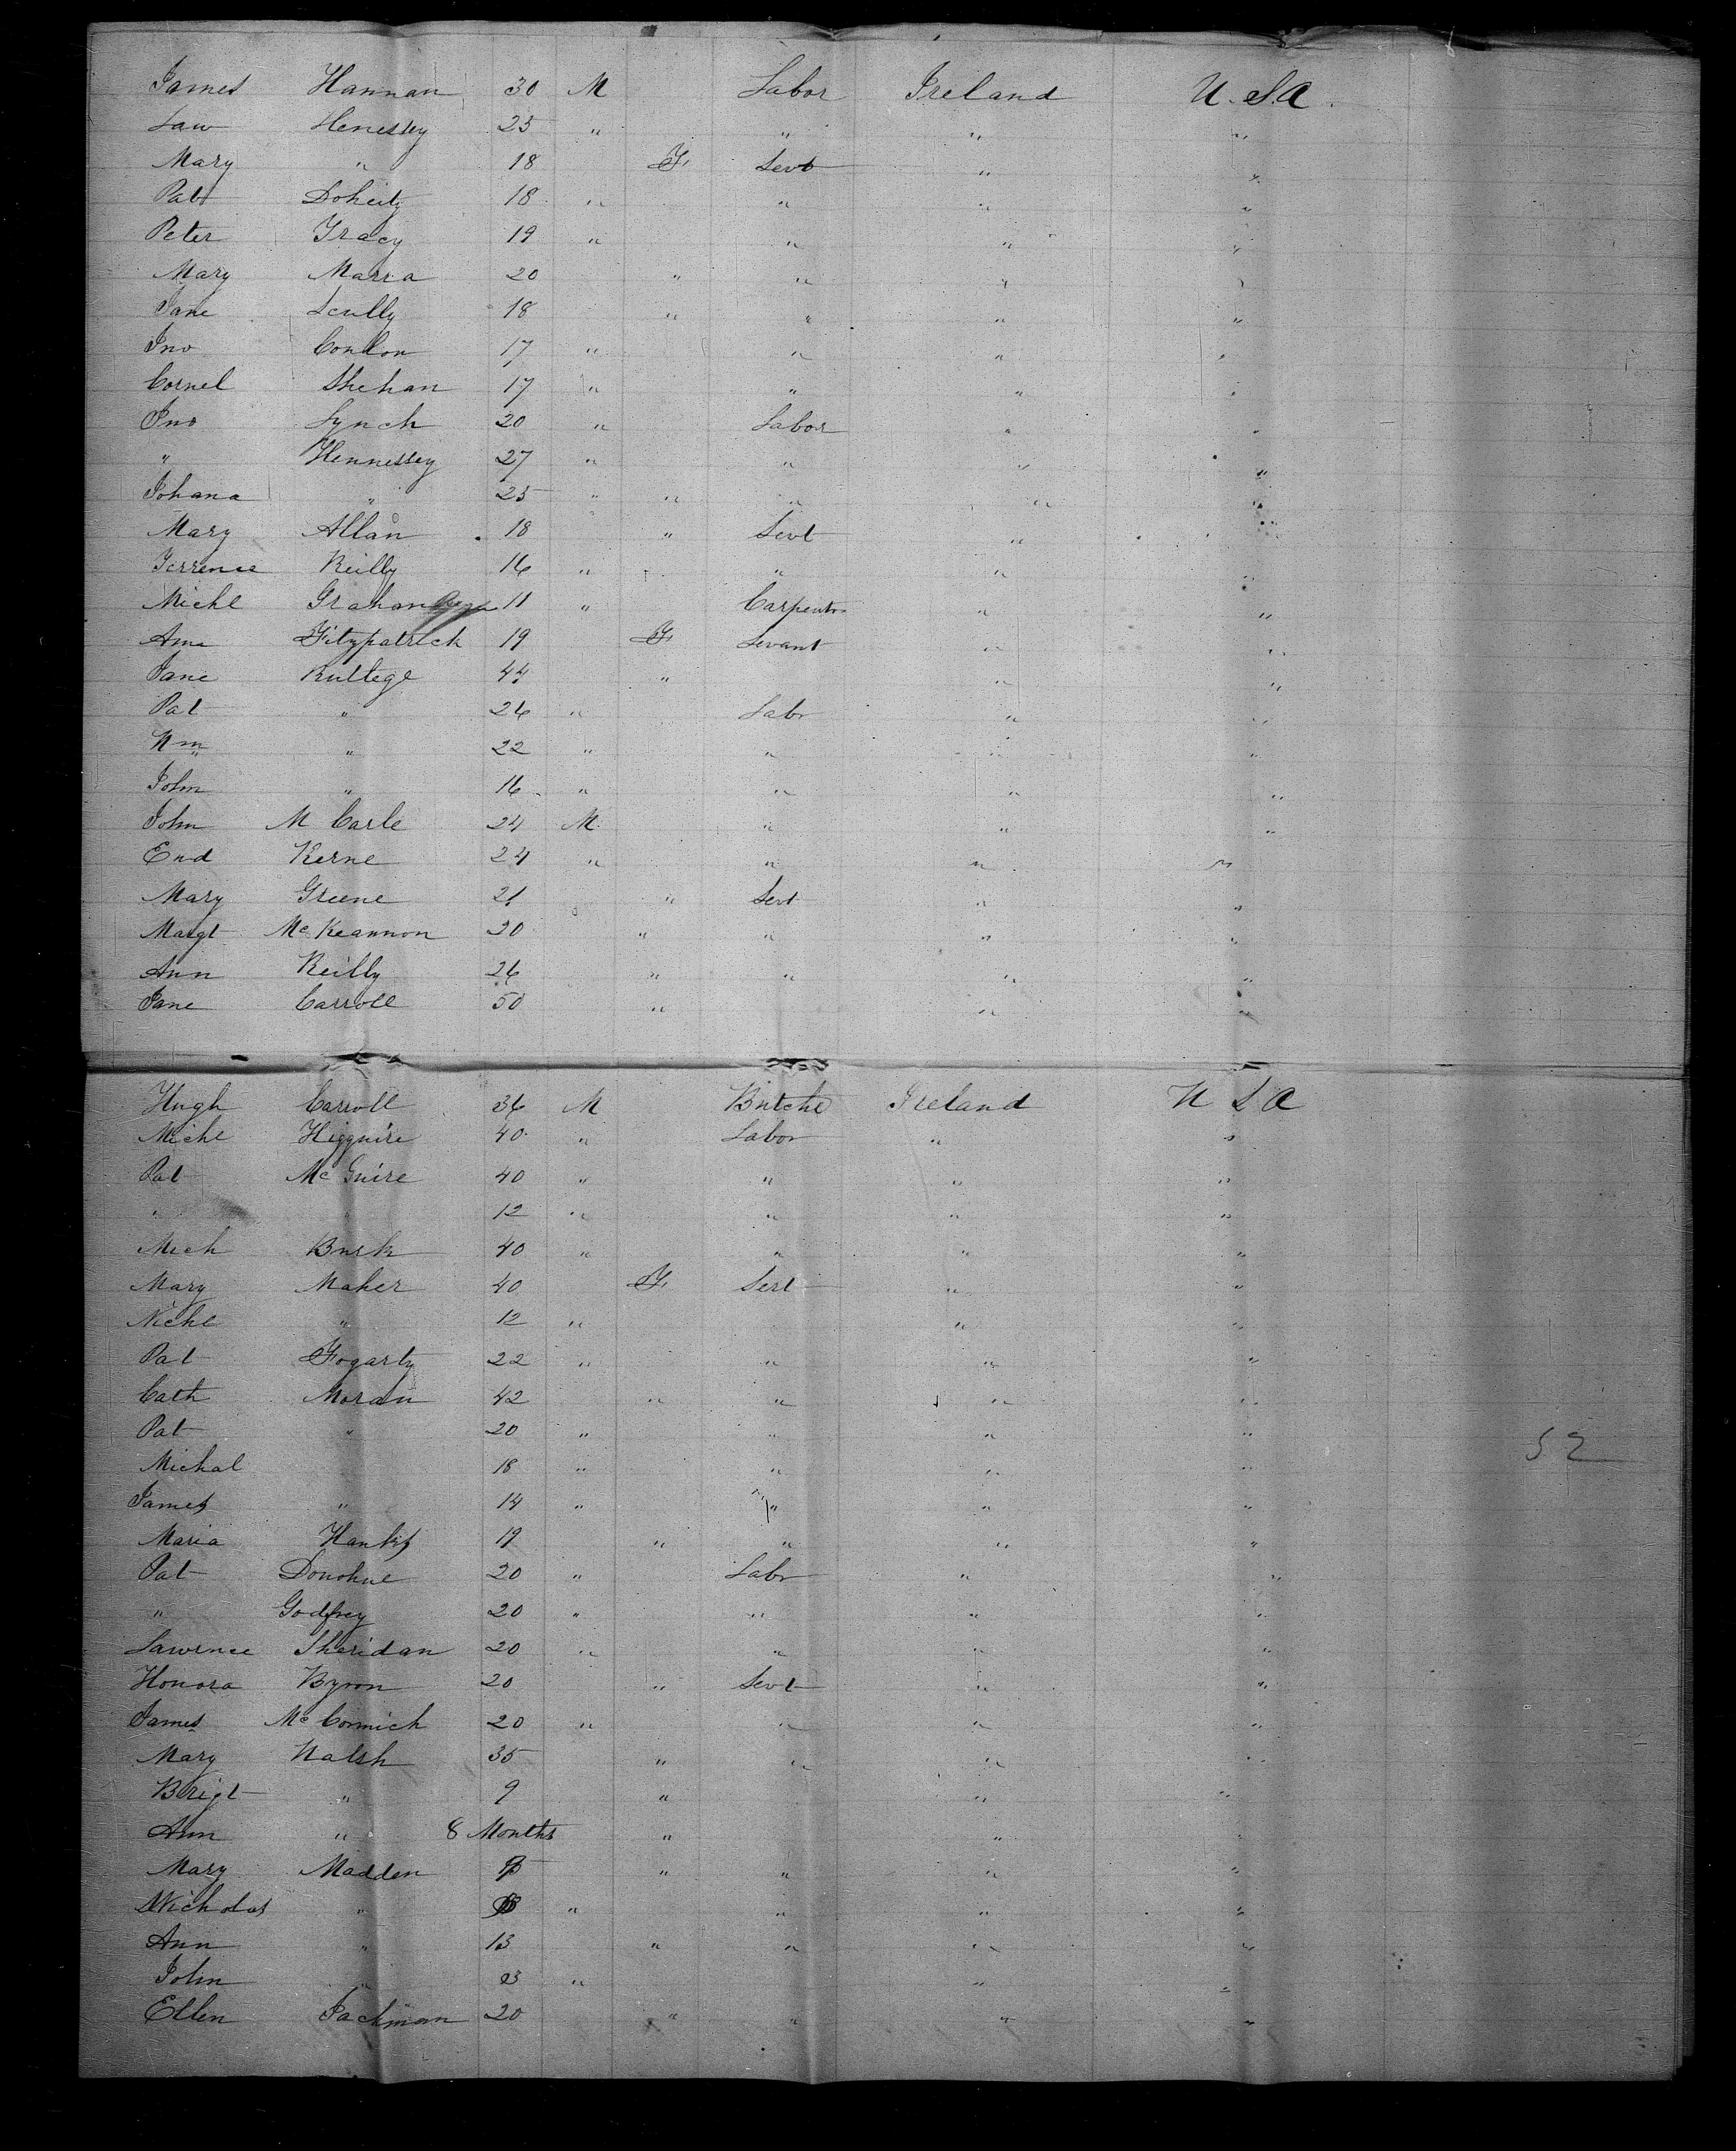 James Hannan 30 M Labor Ireland U.S.A.
Law Henessey 25 " " " "
Mary " 18 F Sevt " "
Pat Doheity 18 " " " "
Peter Tracy 19 " " " "
Mary Marra 20 " " " "
Jane Scully 18 " " " "
Jno Condon 17 " " " "
Cornel Shehan 17 " " " "
Jno Lynch 20 " Labor " "
" Hennessey 27 " " " "
Johana " 25 " " " " "
Mary Allan 18 " Sevt " "
Terrence Reilly 16 " " " "
Michl Graham 11 " Carpentr " "
Ann Fitzpatrick 19 F Sevant " "
Jane Ruttege 44 " " "
Pat " 26 " Labr " "
Wm " 22 " " " "
John " 16 " " " "
John M Carle 24 M " " "
End Kerne 24 " " " "
Mary Greene 21 " Sevt " "
Margt McKeannon 20 " " " "
Ann Reilly 26 " " " "
Jane Carroll 50 " " "
Hugh Carroll 36 M Butche Ireland U S A
Michl Higguire 40 " Labor " "
Pat McGuire 40 " " " "
" " 12 " " " "
Mich Burk 40 " " " "
Mary Maher 40 F Sert " "
Michl " 12 " " "
Pat Fogarty 22 " " " "
Cath Moran 42 " " " "
Pat " 20 " " " "
Michal 18 " " " "
James " 14 " " " "
Maria Hanks 19 " " " "
Pat Donohue 20 " Labr " "
" Godfrey 20 " " " "
Lawrnce Sheridan 20 " " " "
Honora Byron 20 " Sevt " "
James McCormich 20 " " " "
Mary Walsh 35 " " " "
Brigt " 9 " " "
Ann " 8 Months " " "
Mary Madden " " " "
Nicholas " " " " "
Ann " 13 " " " "
John " 3 " " "
Ellen Jackman 20 " " " "
52